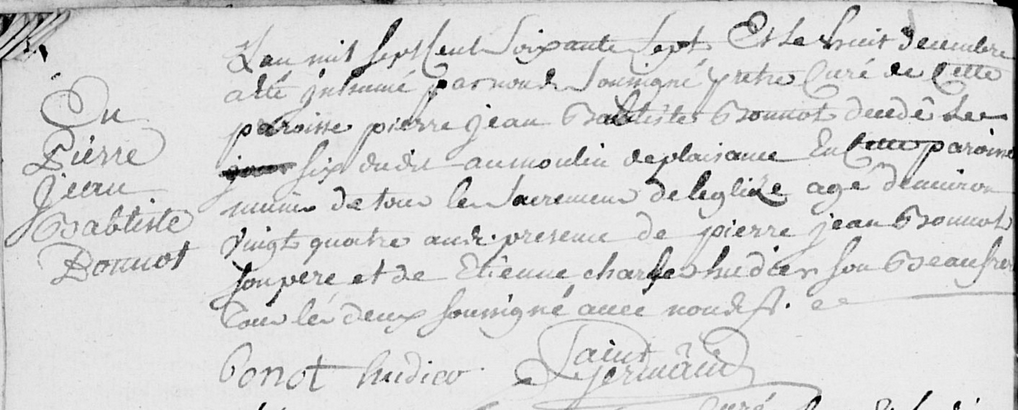 En
Pierre
Jean
Babtiste
Bonnot
L'an mil sept Cent Soixante Sept Et le huit decembre
a été inhumé par nous Soussigné pretre Curé de Cette
paroisse pierre jean Babtiste Bonnot decedé le
six dudit au moulin de plaisance En Cette paroisse
muni de tous les Sacremens de leglize agé denviron
vingt quatre ans. presence de pierre jean Bonnot
son pere et de Etienne charle hudier son Beaufrere
tous les deux soussigné avec nous
Bonot hudier Saint Germain
Curé